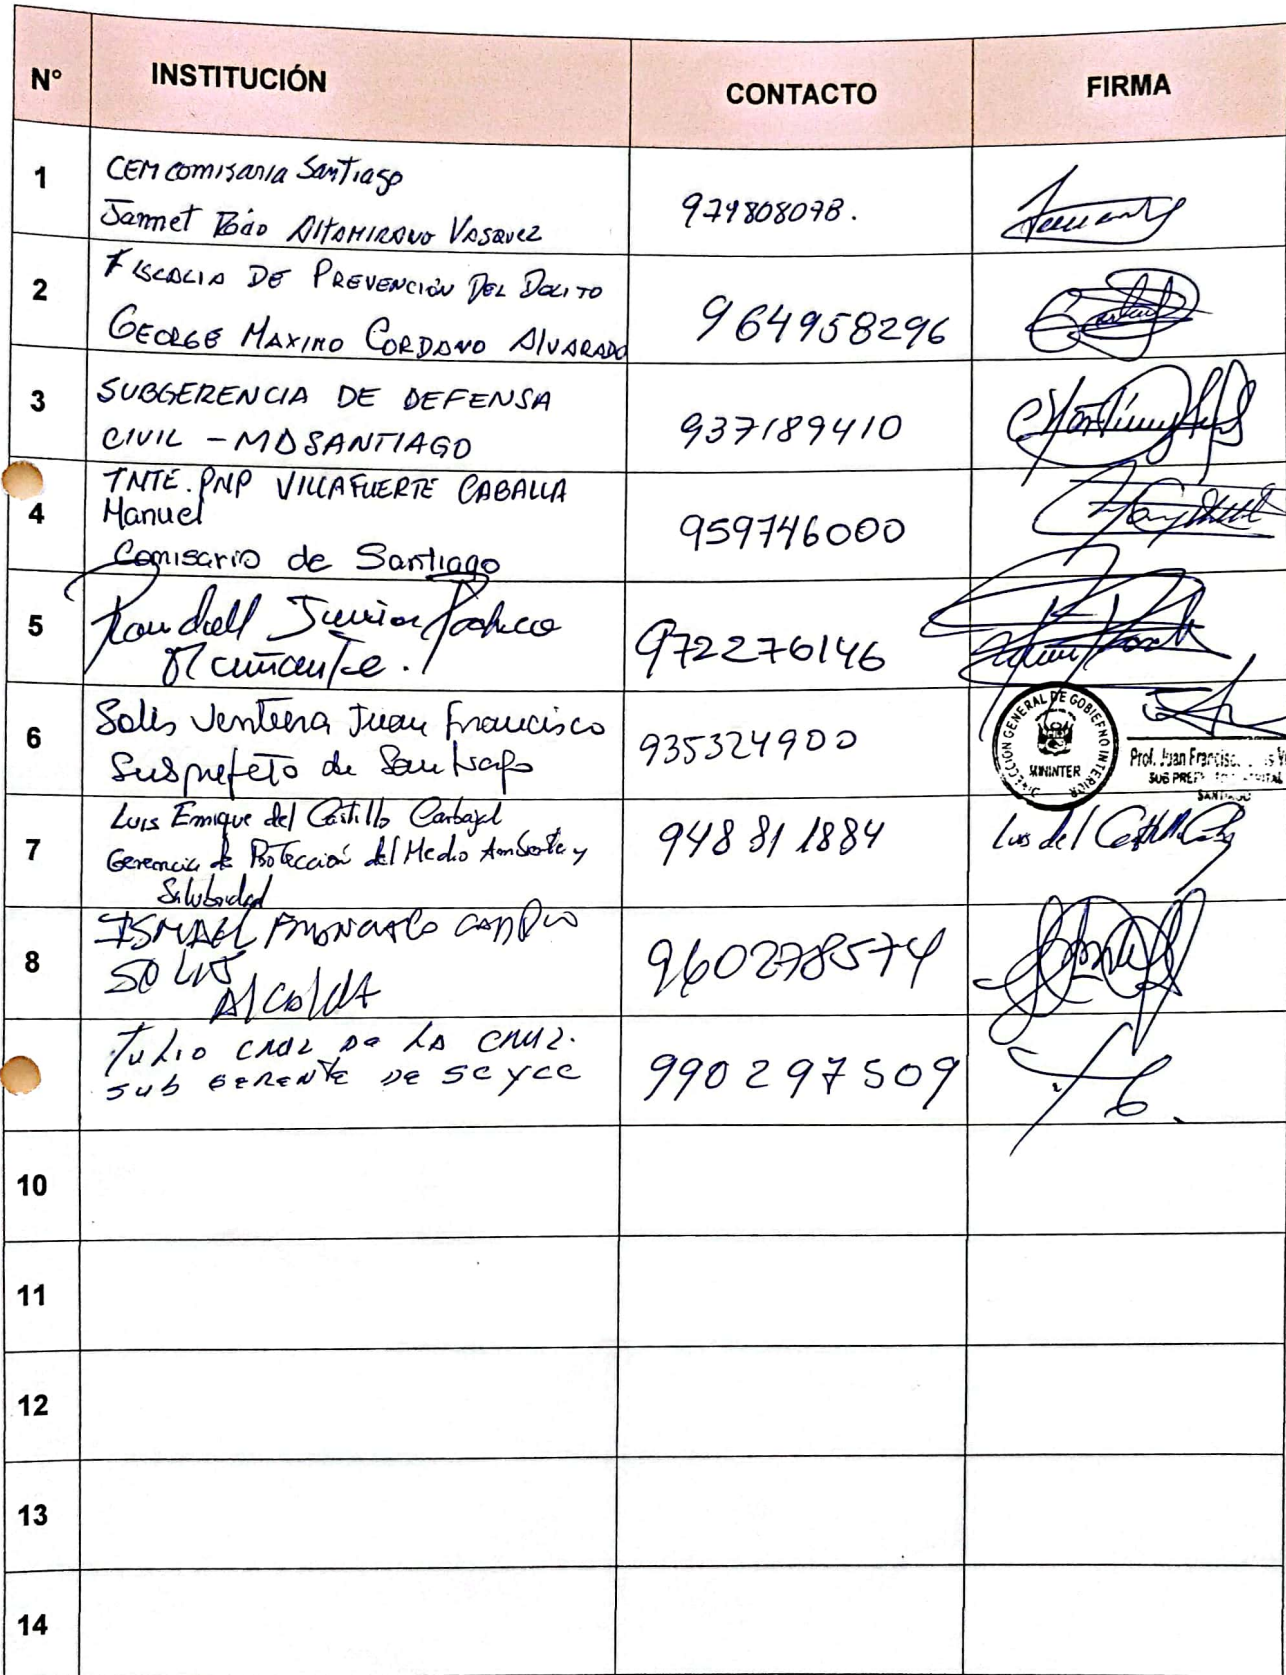 N° INSTITUCIÓN CONTACTO FIRMA
1
CEM comisaria Santiago
Jannet Rocío Altamirano Vasquez
979808098.
2
Fiscalia de Prevención Del Delito
George Maximo Cordano Alvarado
964958296
3
SUBGERENCIA DE DEFENSA
CIVIL - MDSANTIAGO
937189410
4
TNTE. PNP VILLAFUERTE CABALLA
Manuel
Comisario de Santiago
959746000
5
Randall Junior Pacheco
972276146
6
Solis Ventura Juan Francisco
Susprefeto de Santiago
935324900
DIRECCIÓN GENERAL DE GOBIERNO INTERIOR
MININTER
Prof. Juan Francisc
SUB PREF
SANTIAGO
7
Luis Enrique del Castillo Carbajal
Gerencia de Protección del Medio Ambiente y
Salubridad
948 81 1884
Luis del Castillo
8
ISMAEL
SOLIS
Alcalda
960278574
Tulio CRUZ De LA CRUZ.
SUB GERENTE DE SCYCC
990297509
10
11
12
13
14